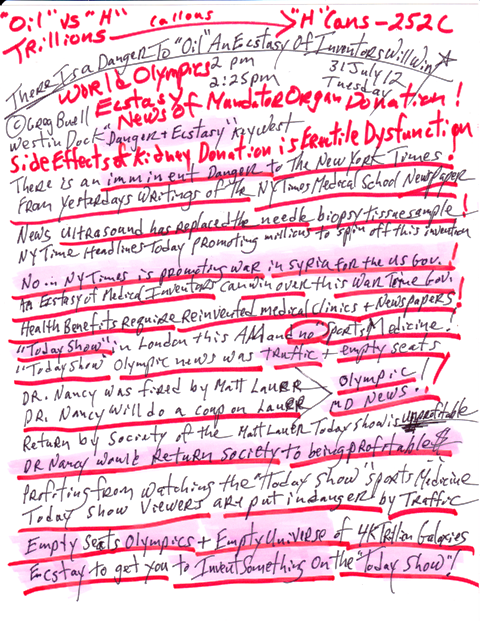 "Oil" vs "H" callons "H" Cans - 252C
Trillions
There Is a Danger To "Oil" An Ecstasy Of Inventors Will Win
World Olympics 2 pm 31 July 12
2:25pm Tuesday
Ecstasy of Mandator Oregan Donation!
News
© Greg Buell
Westin Dock "Danger + Ecstasy" Key West
Side Effects of Kidney Donation is Erectile Dysfunction
There is an imminent Danger to The New York Times!
From Yesterdays Writings of the NY Times Medical School Newspaper
News ultrasound has replaced the needle biopsy tissue sample!
NY Time Headlines Today promoting millions to spin off this invention
No.. in NY Times is promoting war in Syria for the US Gov.!
An Ecstasy of Medical Inventors can win over this War Time Gov!
Health Benefits Require Reinvented medical clinics + Newspapers!
"Today Show" in London this AM and no Sports Medicine!
"Today Show" Olympic news was traffic + empty seats
DR. Nancy was fired by Matt Lauer Olympic!
DR. Nancy will do a coup on Lauer MD News!
Return by Society of the Matt Lauer Today Show is unprofitable
DR Nancy would Return society to being profitable $
Profiting from watching the "Today Show" sports Medicine
Today Show Viewers are put in danger by Traffic
Empty Seats Olympics + Empty Universe of 4K Trillion Galaxies
Ecstay to get you to Invent Something On the "Today Show"!